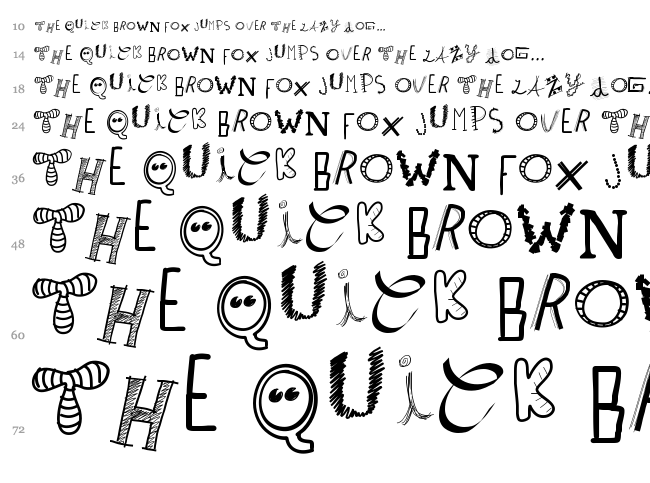 10 THE QUICK BROWN FOX JUMPS OVER THE LAZY DOG...
14 THE QUICK BROWN FOX JUMPS OVER THE LAZY DOG...
18 THE QUICK BROWN FOX JUMPS OVER THE LAZY DOG.
24 THE QUICK BROWN FOX JUMPS OVER TH
36 THE QUICK BROWN FOX JU
48 THE QUICK BROWN
60 THE QUICK BROW
72 THE QUICK BR